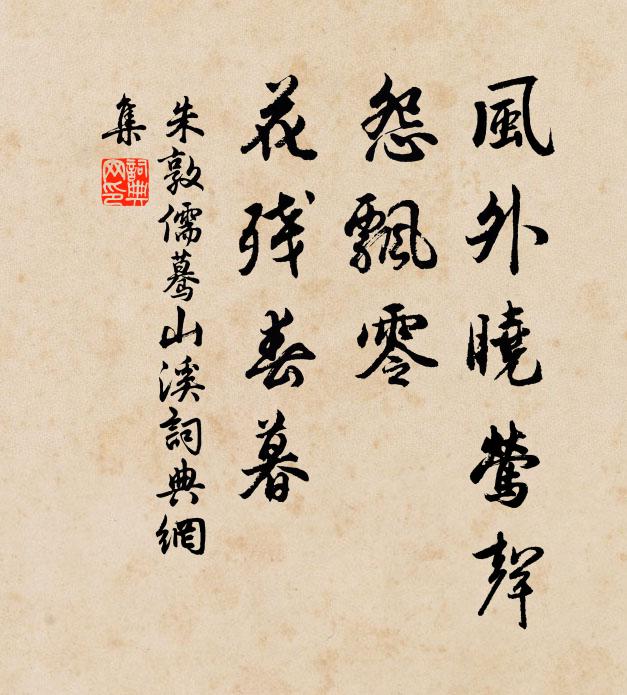 風外曉鶯聲
怨飄零
花残春暮
朱敦儒驀山溪詞典網
集
詞典
网印